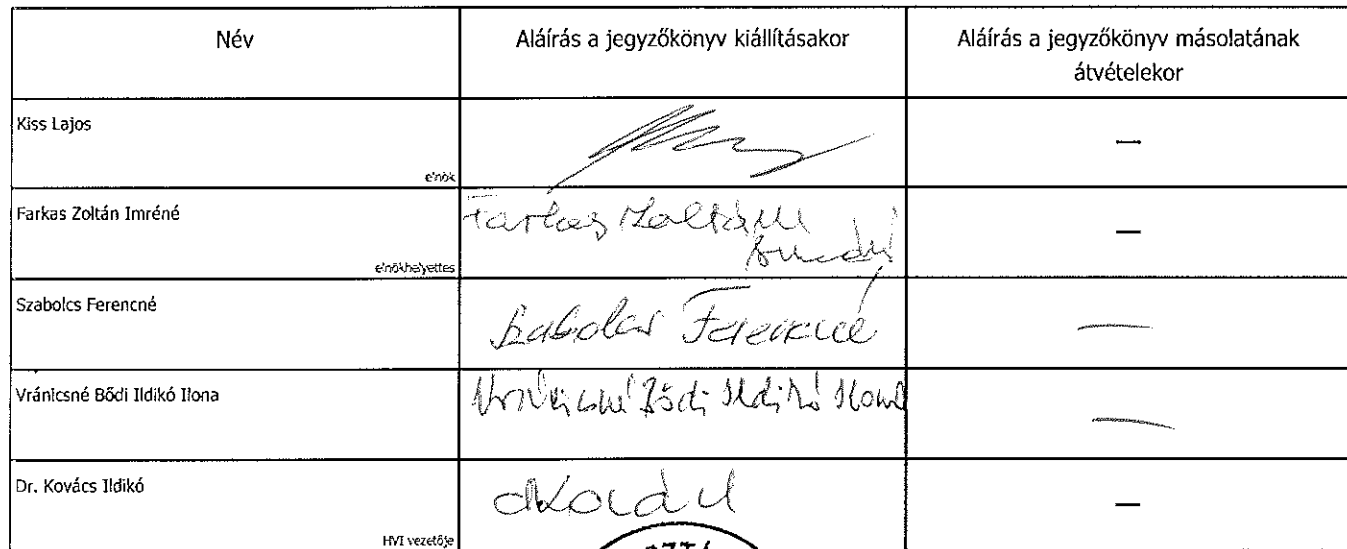 Név
Aláírás a jegyzőkönyv kiállításakor
Aláírás a jegyzőkönyv másolatának
átvételekor
Kiss Lajos
elnök
—
Farkas Zoltán Imréné
elnökhelyettes
Farkas Zoltán
Imréné
—
Szabolcs Ferencné
Szabolcs Ferencné
—
Vránicsné Bődi Ildikó Ilona
Vránicsné Bődi Ildikó Ilona
—
Dr. Kovács Ildikó
HVI vezetője
—